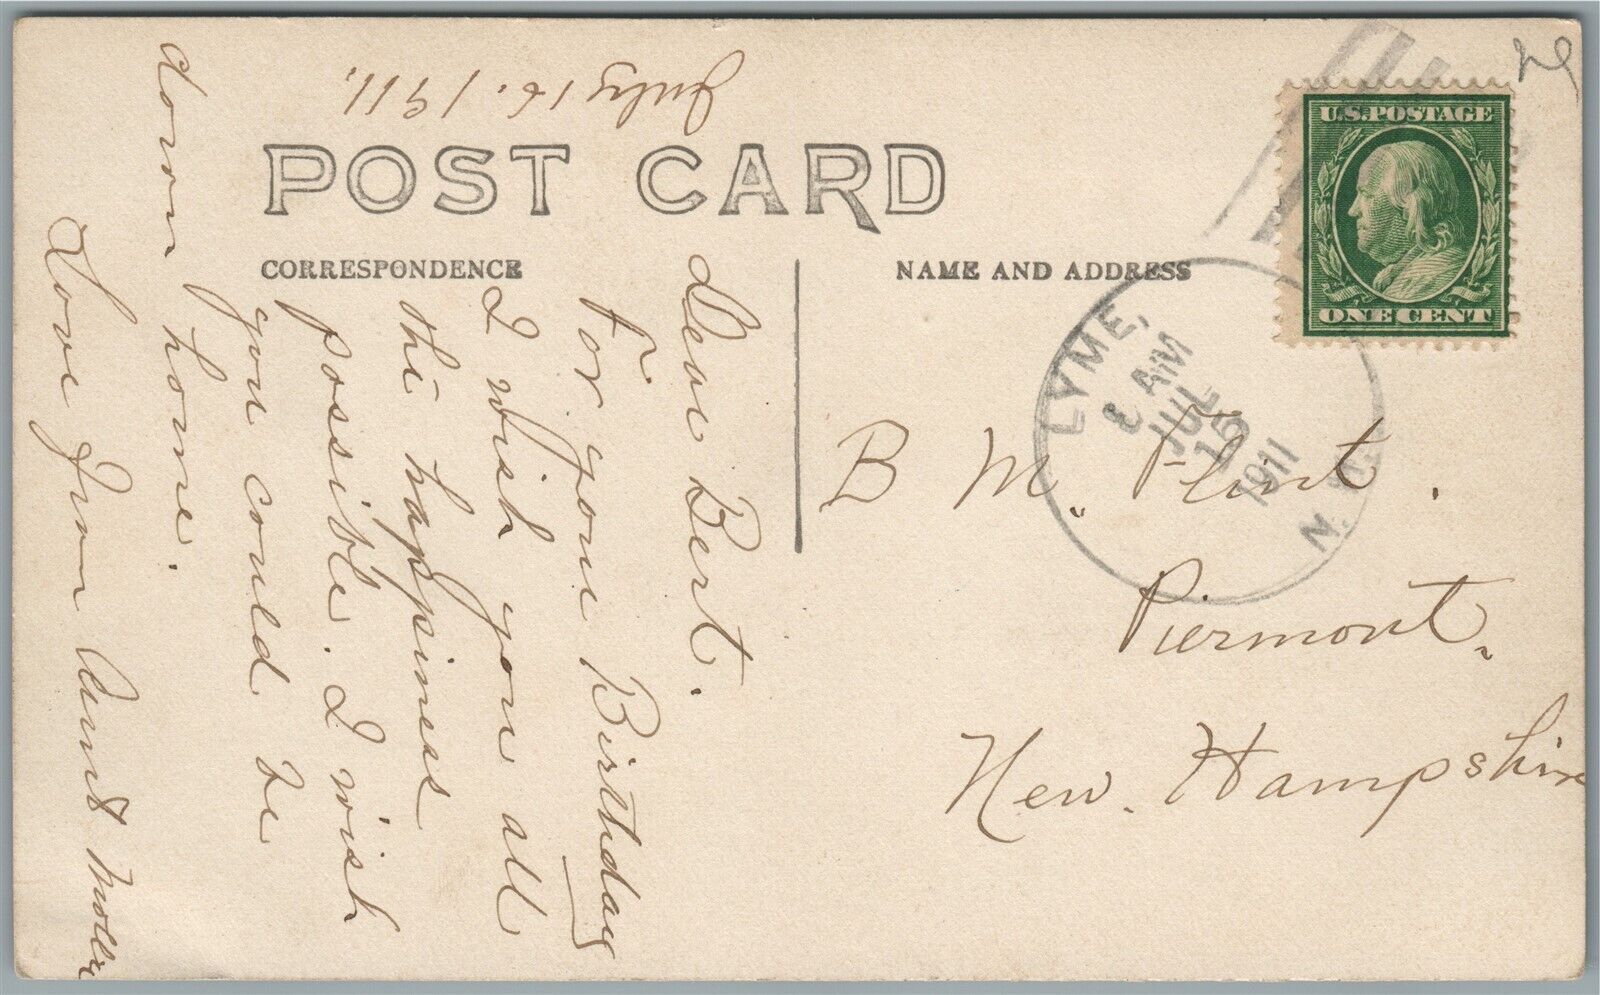 July 16. 1911.
POST CARD
CORRESPONDENCE
NAME AND ADDRESS
U.S. POSTAGE
ONE CENT
LYME, N.H.
8 AM
JUL
15
1911
Dear Bert.
For your Birthday
I wish you all
the happiness
possible. I wish
you could be
down home.
Love from Aunt Molly
B M. Flint.
Piermont.
New. Hampshire